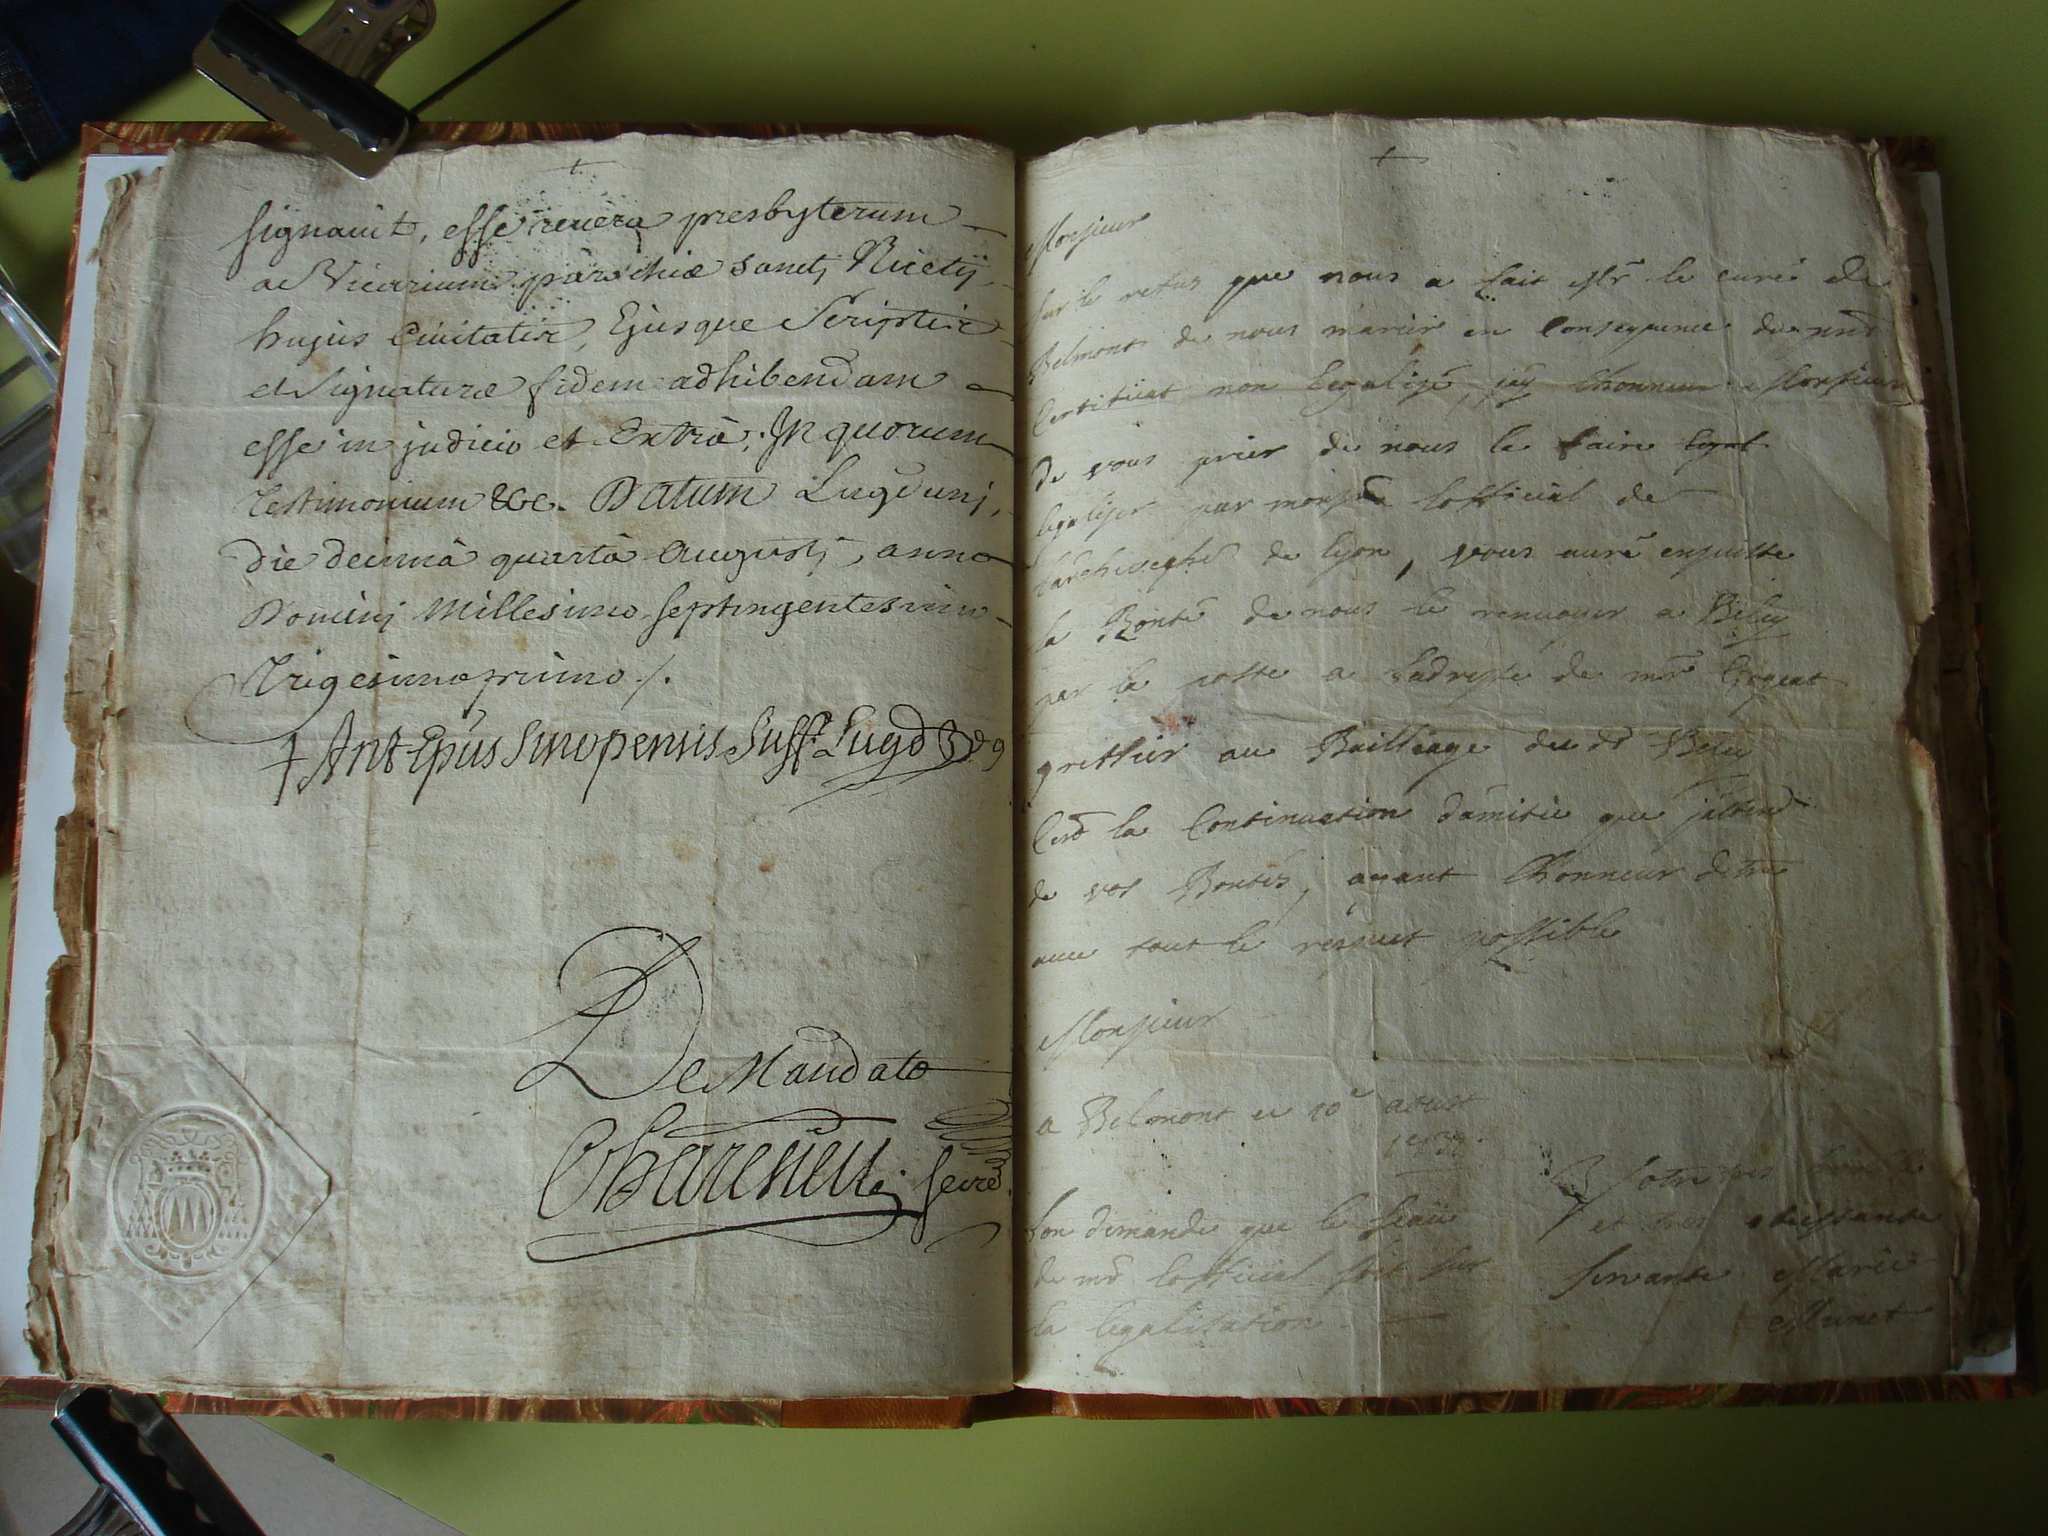 signavit, esse revera presbyterum
ac Vicarium parochiæ Sancti Nicetij
hujus Civitatis, Ejusque Scriptis
et signaturæ fidem adhibendam
esse in judicio et Extrà; In quorum
Testimonium &c. Datum Lugduni,
die decimâ quartâ Augusti, anno
Domini Millesimo septingentesimo
trigesimo primo ./.
† Ant Epūs Sinopensis Suff. Lugd
De Mandato
secre
Monsieur
Sur le refus que nous a fait Mr le curé de
Belmont de nous marier en Consequence du
Certificat non legalizé, jay lhonneur Monsieur
de vous prier de nous le faire legal
legaliser par lofficial de
de lyon, vous auré ensuitte
la Bonté de nous le renvoier a Beley
par la poste a ladresse de mr
greffier au Bailliage du dt Beley
Cest la Continuation damitié que jattend
de vos Bontés, ayant lhonneur detre
avec tout le respect possible
Monsieur
a Belmont ce 10e aoust
Votre tres humble
lon demande que le seau
et tres obeissante
de mr lofficial soit sur
servante Marie
la legalisation
Munet